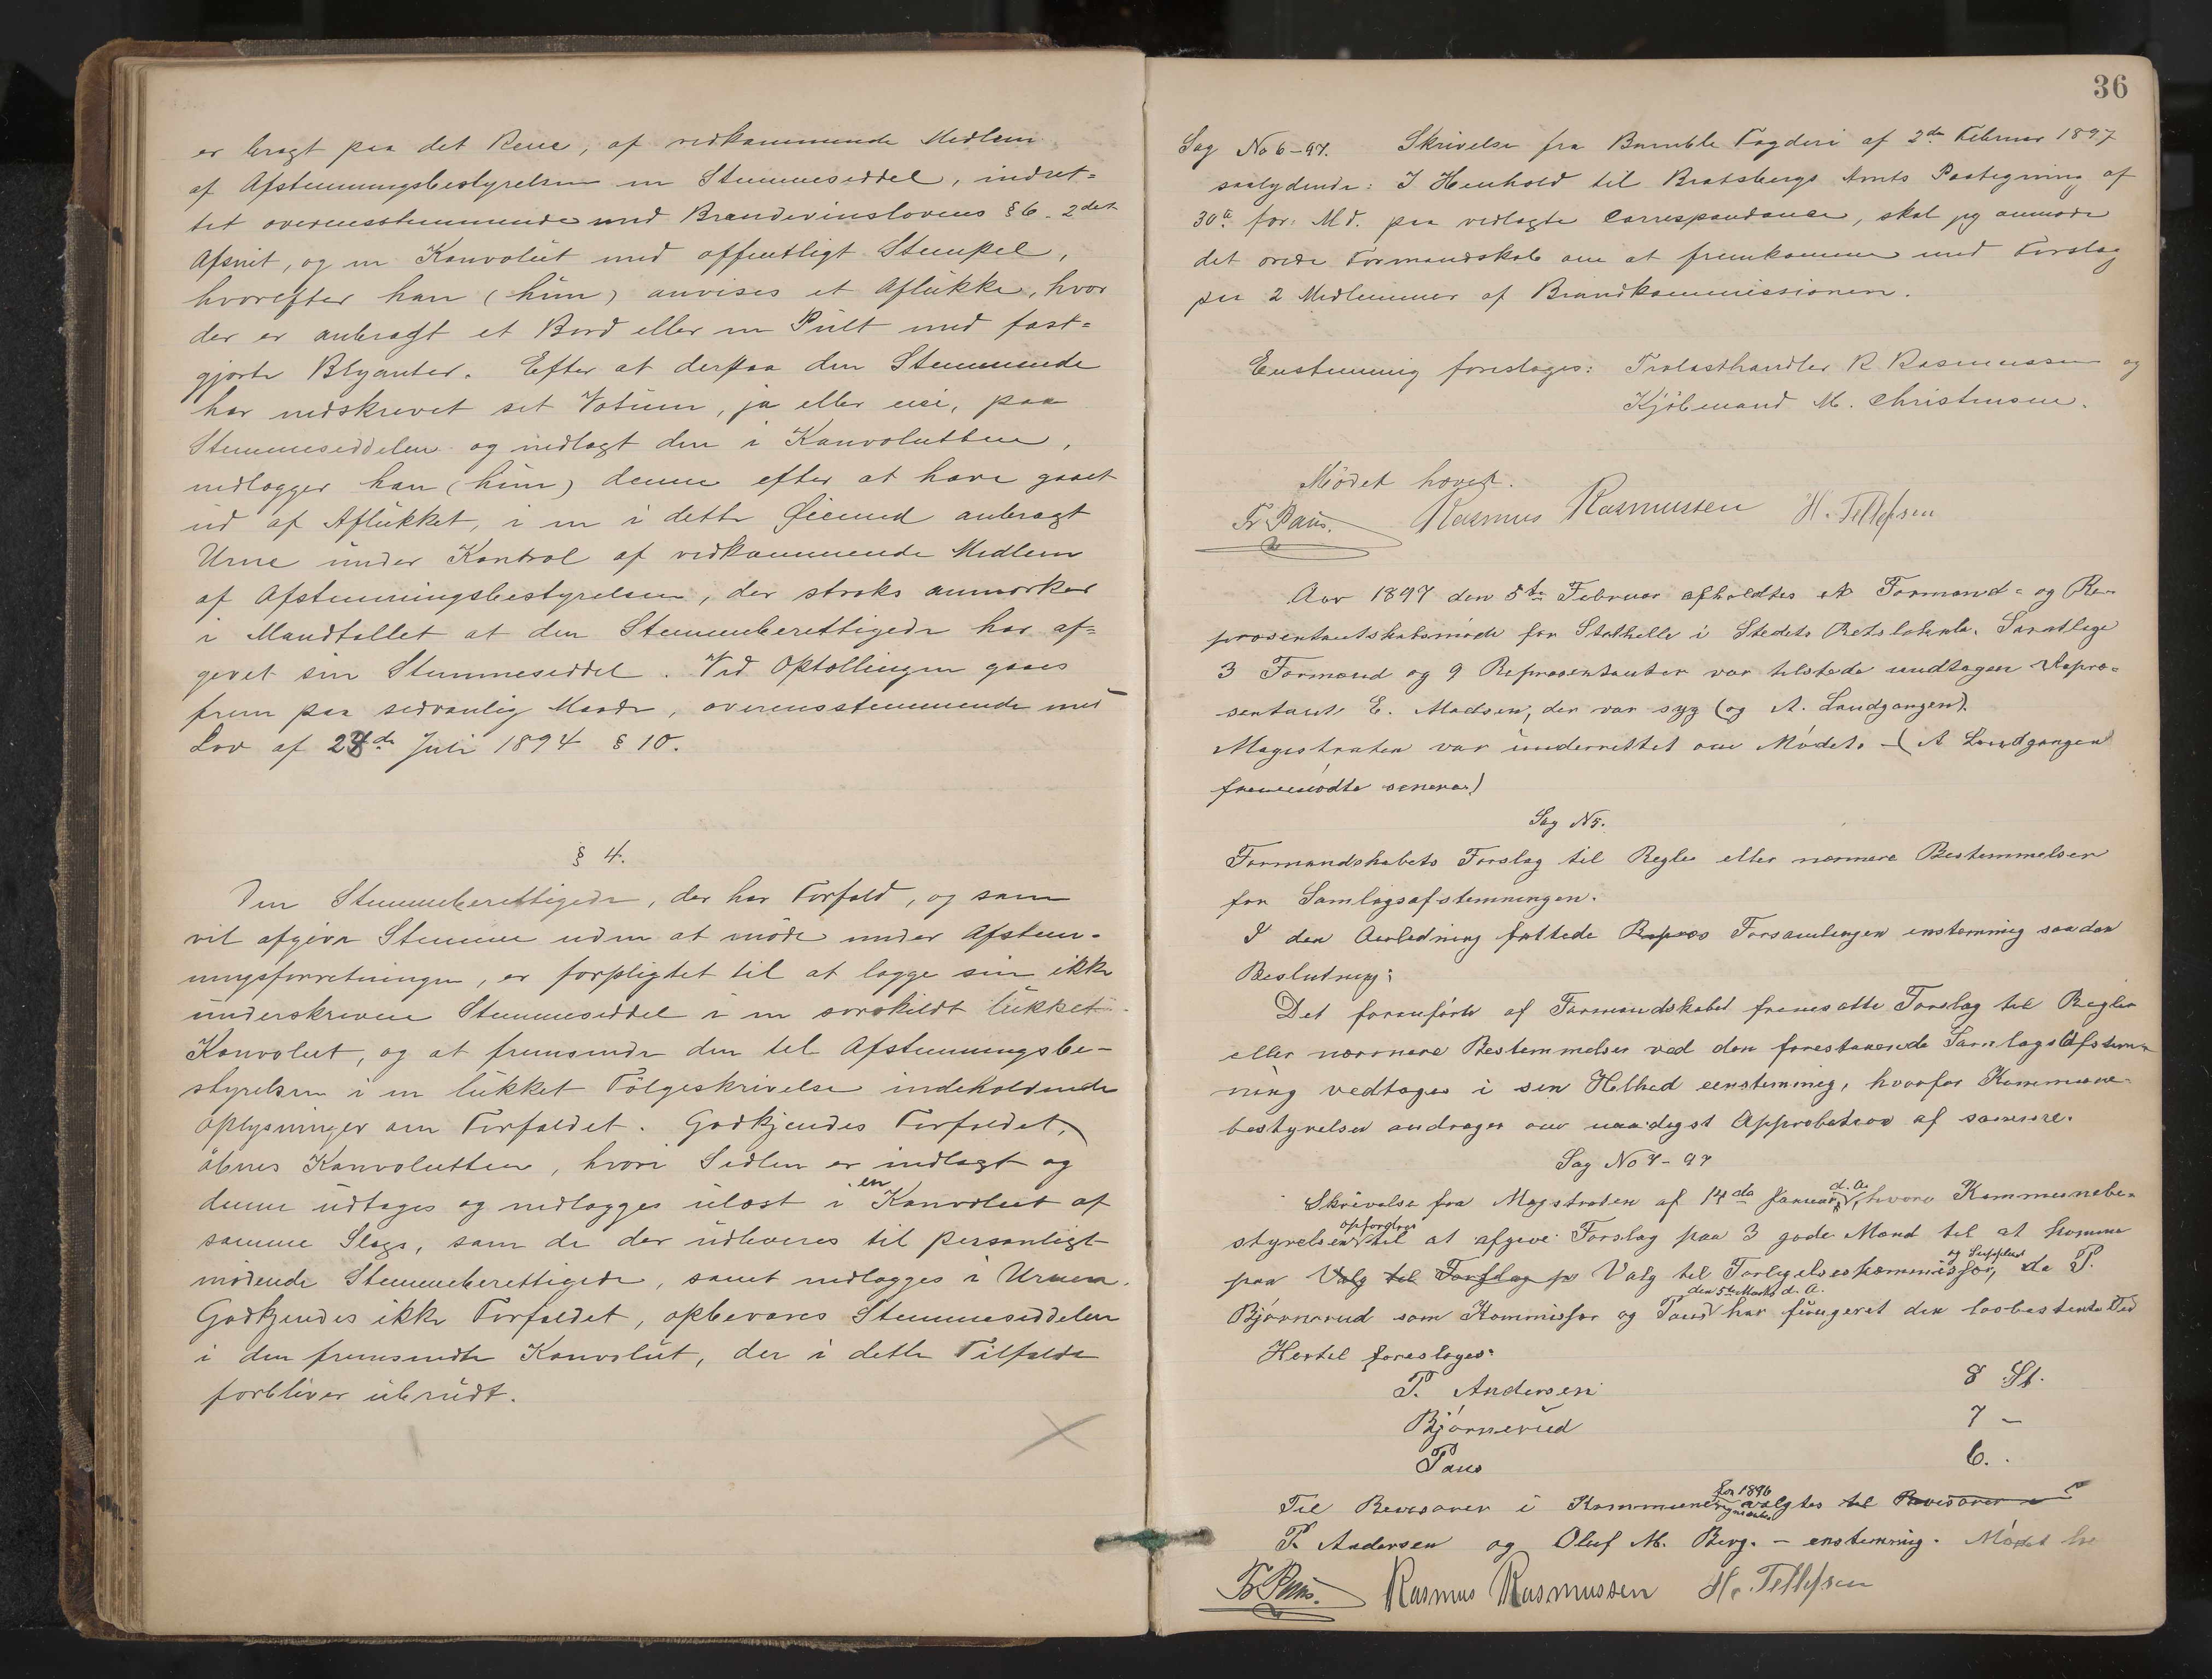 er bragt paa det Rene, af vedkommende Medlem
af Afstemningsbestyrelsen en Stemmeseddel, indret=
tet overensstemmende med Brændevinslovens § 6 - 2det
Afsnit, og en Konvolut med offentligt Stempel,
hvorefter han (hun) anvises et Aflukke, hvor
der er anbragt et Bord eller en Pult med fast=
gjorte Blyanter. Efter at derpaa den Stemmende
har nedskrevet sit Votum, ja eller nei, paa
Stemmeseddelen og nedlagt den i Konvolutten,
nedlægger han (hun) denne efter at have gaaet
ud af Aflukket, i en i dette Øiemed anbragt
Urne under Kontrol af vedkommende Medlem
af Afstemningsbestyrelsen, der straks anmærker
i Mandtallet at den Stemmeberettigede har af=
givet sin Stemmeseddel. Ved Optællingen gaaes
frem paa sedvanlig Maade, overensstemmende med
Lov af de Juli 1894 § 10.
§ 4.
Den Stemmeberettigede, der har Forfald, og som
vil afgive Stemme uden at møde under Afstem-
ningsforretningen, er forpligtet til at lægge sin ikke
underskrevne Stemmeseddel i en særskildt lukket
Konvolut, og at fremsende den til Afstemningsbe-
styrelsen i en lukket Følgeskrivelse indeholdende
Oplysninger om Forfaldet. Godkjendes Forfaldet,
åbnes Konvolutten, hvori Sedlen er indlagt og
denne udtages og nedlægges ulæst i en Konvolut af
samme Slags, som de der udleveres til personligt
mødende Stemmeberettigede, samt nedlægges i Urnen.
Godkjendes ikke Forfaldet, opbevares Stemmeseddelen
i den fremsendte Konvolut, der i dette Tilfælde
forbliver ubrudt.
36
Sag No 6-97. Skrivelse fra Bamble Fogderi af 2de Februar 1897
saalydende: I Henhold til Bratsbergs Amts Paategning af
30te for: Md. paa vedlagte Correspondance, skal jeg anmode
det ærede Formandskab om at fremkomme med Forslag
paa 2 Medlemmer af Brandkommissionen.
Enstemmig foreslages: Trælasthandler R Rasmussen og
Kjøbmand M. Christensen.
Mødet hævet.
Fr. Paus. Rasmus Rasmussen H. Tellefsen
Aar 1897 den 5te Februar afholdtes et Formand= og Re-
præsentantskabsmøde for Stathelle i Stedets Retslokale. Samtlige
3 Formænd og 9 Repræsentanter var tilstede undtagen Repræ=
sentant E. Madsen, der var syg (og A. Landgangen).
Magistraten var underrettet om Mødet. - (A Landgangen
fremmødte senere)
Sag N 5.
Formandskabets Forslag til Regler eller nærmere Bestemmelser
for Samlagsafstemningen.
I den Anledning fattede Repræs Forsamlingen enstemmig saadan
Beslutning:
Det foranførte af Formandskabet fremsatte Forslag til Regler
eller nærmere Bestemmelser ved den forestaaende Samlags Afstem-
ning vedtages i sin Helhed eenstemmig, hvorfor Kommune-
bestyrelsen andrager om naadigst Approbation af samme.
Sag No 7-97
Skrivelse fra Magistraten af 14de Januar d. A. hvori Kommunebe-
styrelsen opfordres til at afgive Forslag paa 3 gode Mænd til at komme
paa Valg til Forslag p Valg til Forligelseskommissær og Supplant, da P.
Bjørnerud som Kommissær og Paus den 5te Marts d. A. har fungeret den lovbestemte Tid
Hertil foreslages:
P. Andersen 8 St.
Bjørnerud 7 -
Paus 6.
Til Revisorer i Kommuneregnskabet for 1896 valgtes til Revisorer
P. Andersen og Oluf M. Berg. - enstemmig. Mødet hæ
Fr. Paus. Rasmus Rasmussen H. Tellefsen